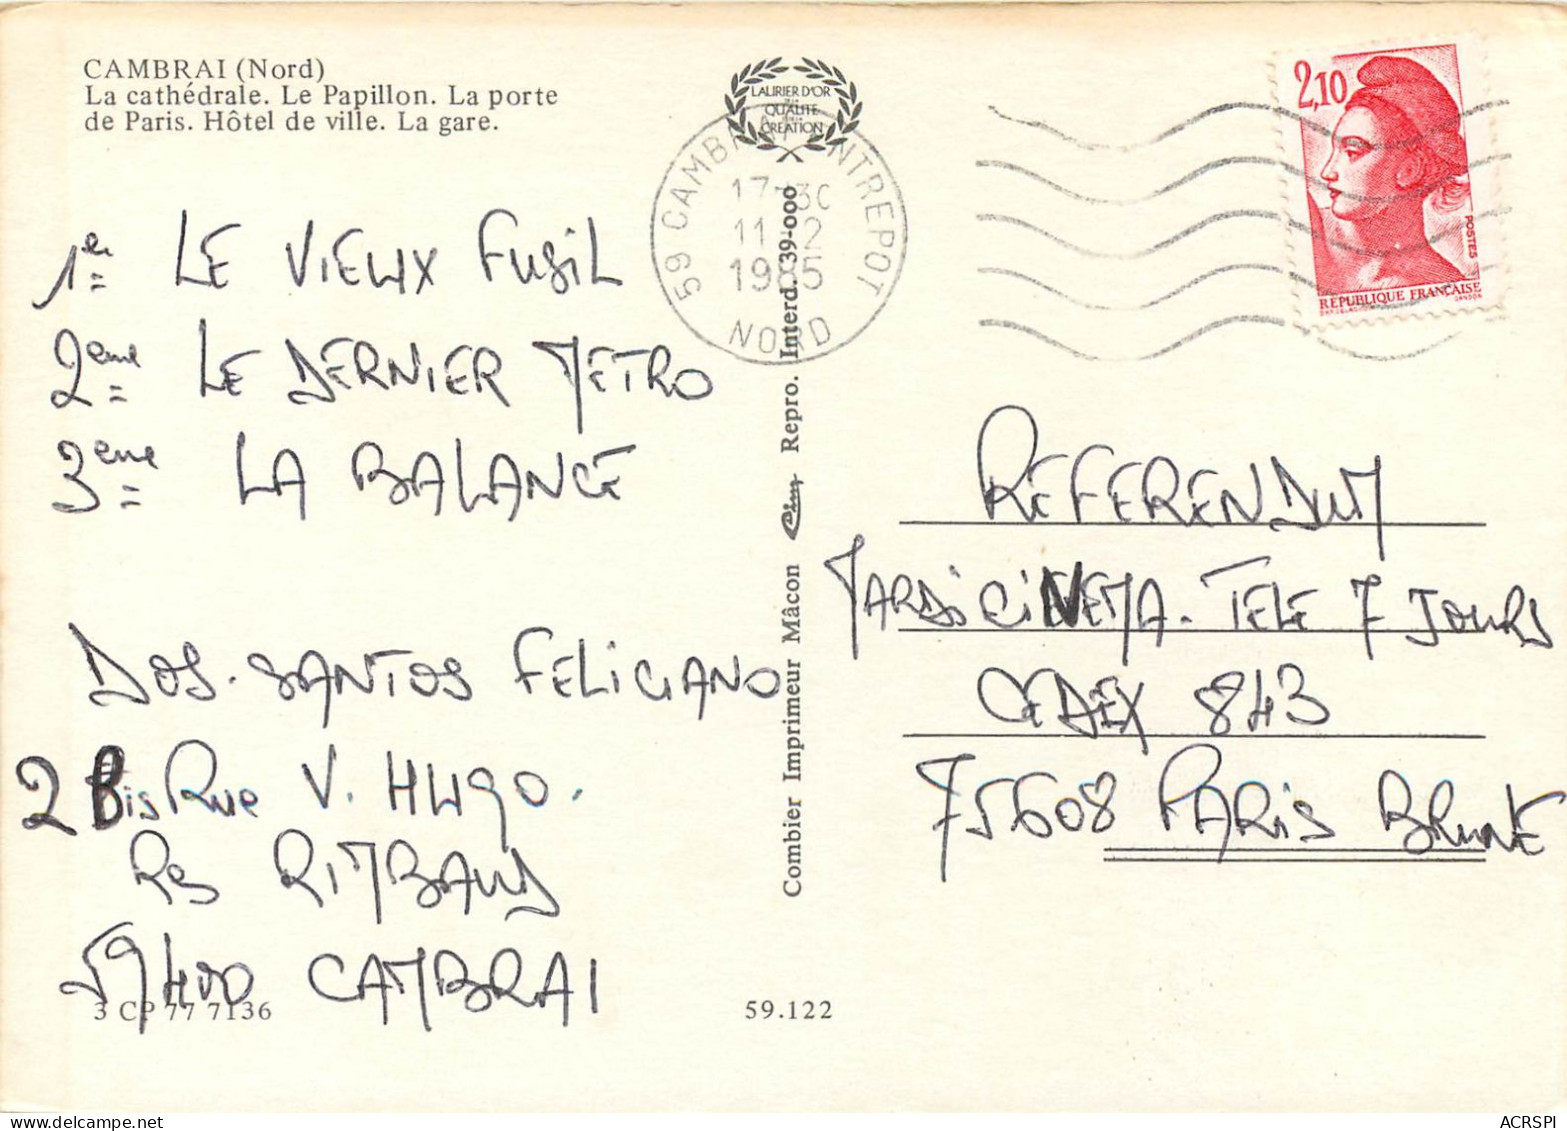 CAMBRAI (Nord)
La cathédrale. Le Papillon. La porte
de Paris. Hôtel de ville. La gare.
LAURIER D'OR
QUALITE
CREATION
59 CAMBRAI ENTREPOT
17-30
11-2
1985
NORD
2,10
POSTES
RÉPUBLIQUE FRANÇAISE
GANDON
1er LE VIEUX FUSIL
2ème LE DERNIER METRO
3ème LA BALANCE
DOS-SANTOS FELICIANO
2 Bis Rue V. HUGO.
RS RIMBAUD
59400 CAMBRAI
Combier Imprimeur Mâcon Cim Repro. Interd. 39-000
REFERENDUM
MARDI CINEMA. TELE 7 JOURS
CEDEX 843
75608 PARIS BRUNE
3 CP 77 7136
59.122
ACRSPI